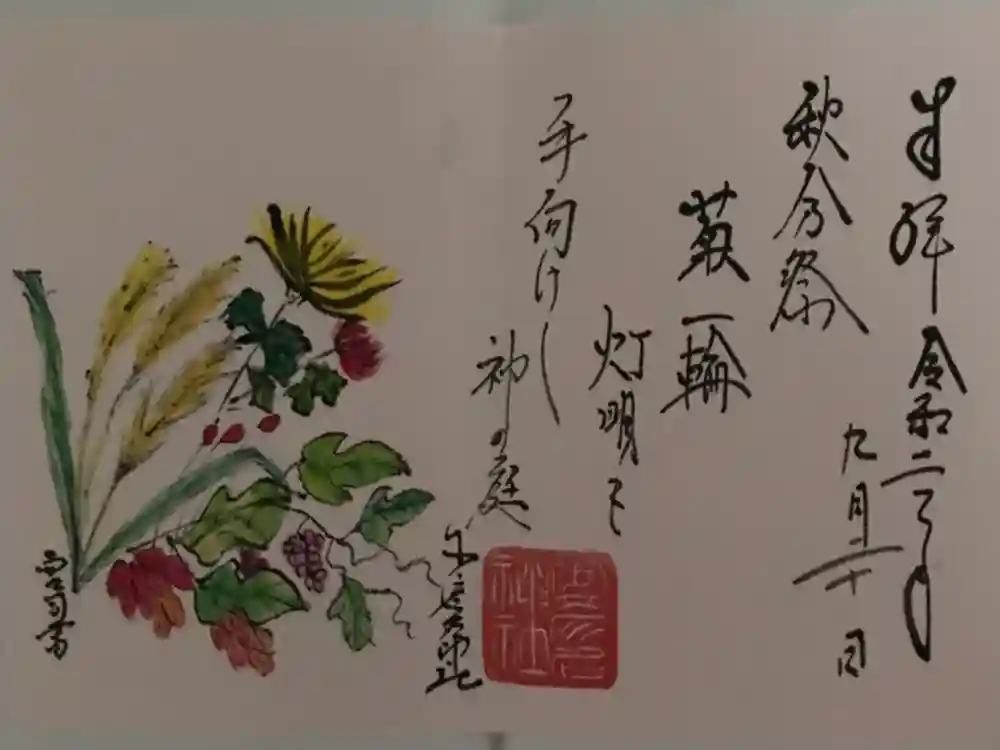 奉拝 令和二年
九月二十日
秋分祭
菊一輪
灯明に
手向けし
神の庭
神社